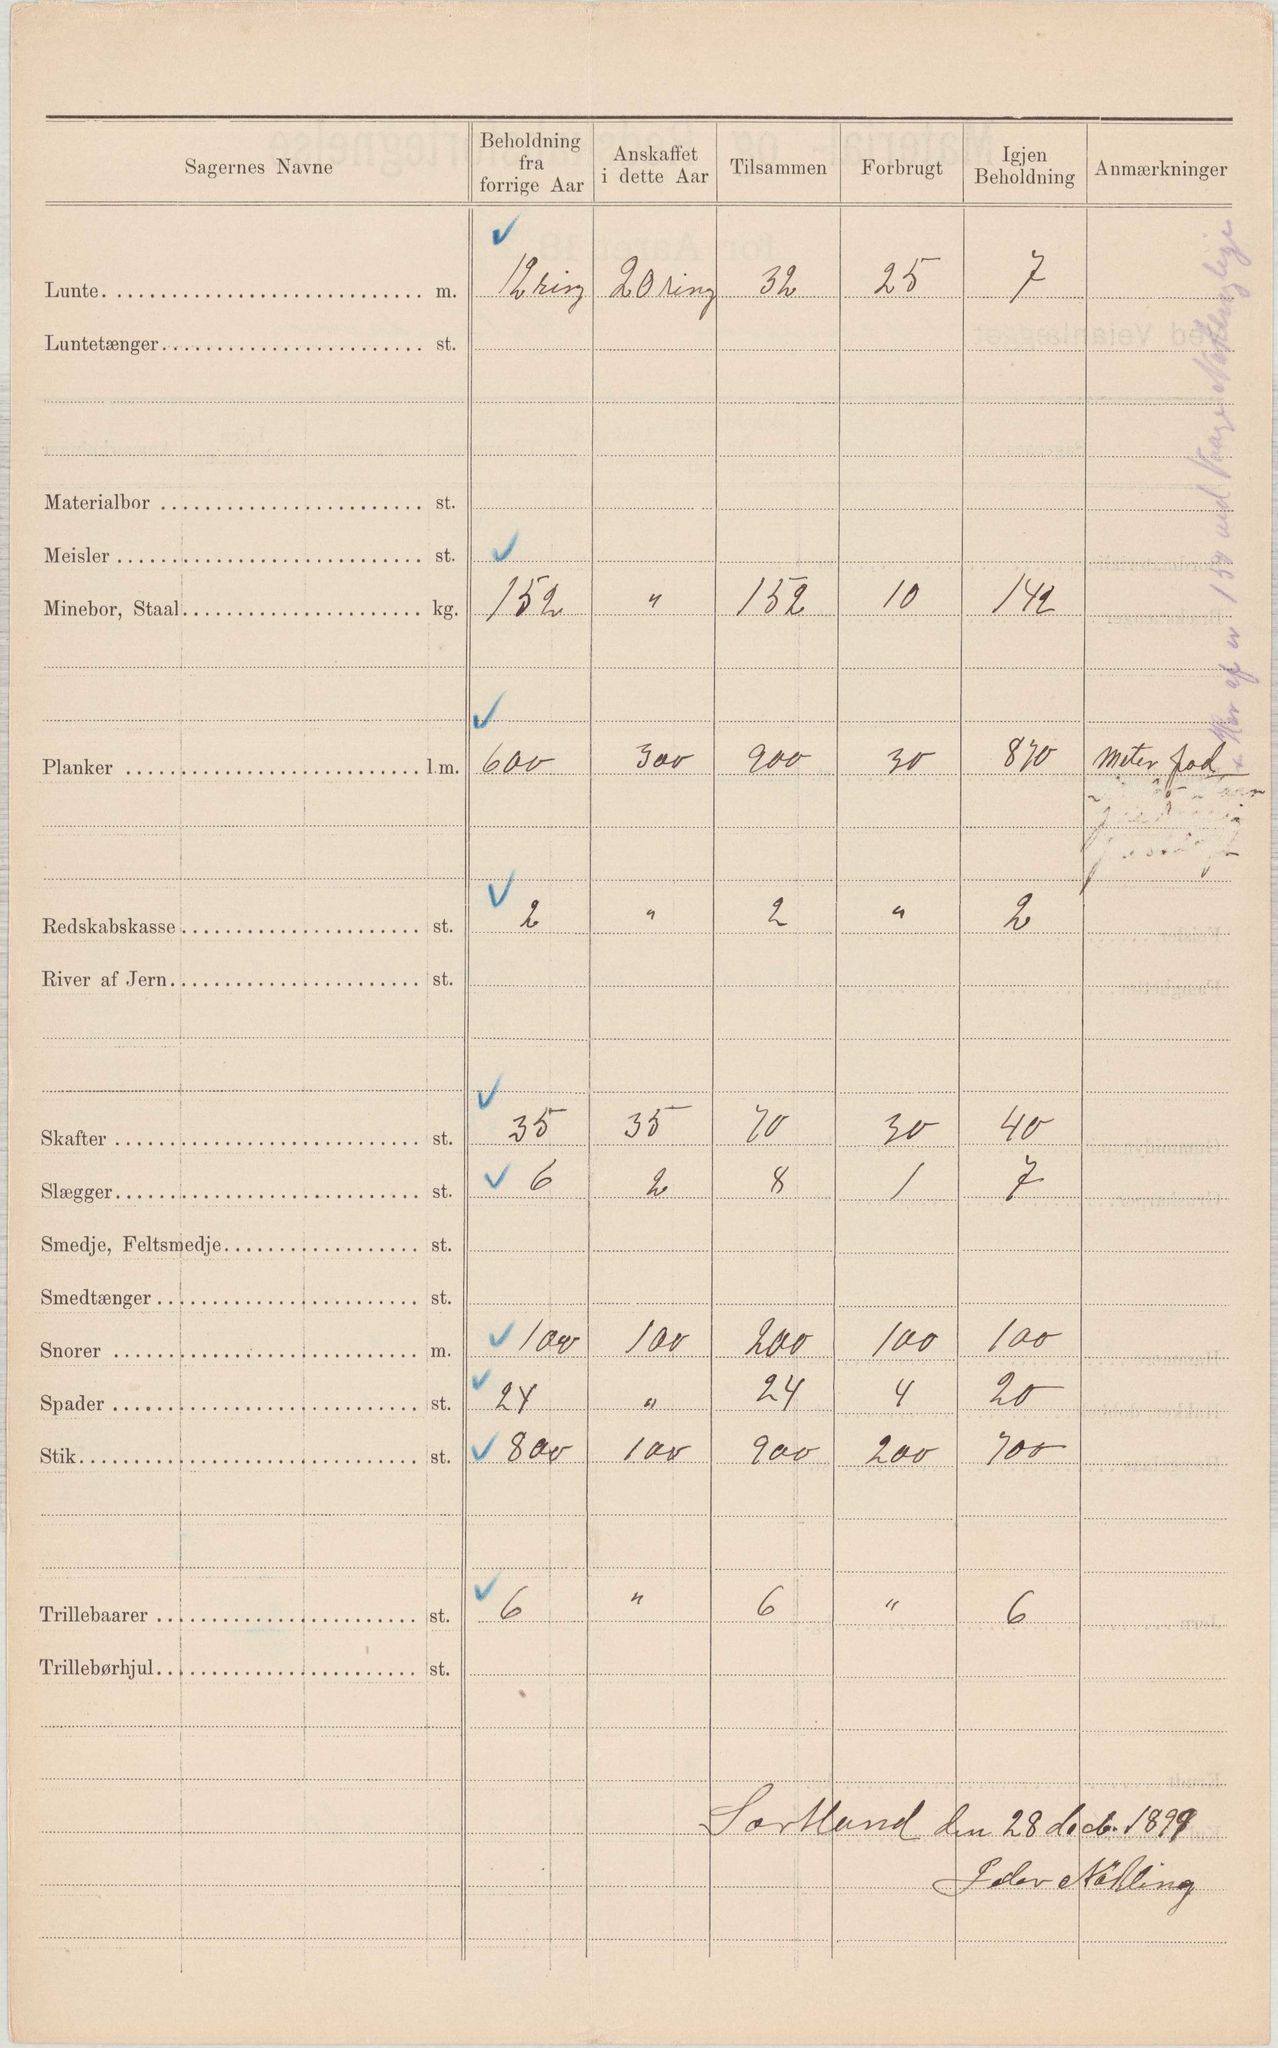 Sagernes Navne | Beholdning fra forrige Aar | Anskaffet i dette Aar | Tilsammen | Forbrugt | Igjen Beholdning | Anmærkninger
Lunte m. 12 ring 20 ring 32 25 7
Luntetænger st.
Materialbor st.
Meisler st.
Minebor, Staal kg. 152 " 152 10 142
Planker l.m. 600 300 900 30 870 meter
Redskabskasse st. 2 " 2 " 2
River af Jern st.
Skafter st. 35 35 70 30 40
Slægger st. 6 2 8 1 7
Smedje, Feltsmedje st.
Smedtænger st.
Snorer m. 100 100 200 100 100
Spader st. 24 " 24 4 20
Stik st. 800 100 900 200 700
Trillebaarer st. 6 " 6 " 6
Trillebørhjul st.
Sortland den 28 decb. 1899
Peder
Her af er ved